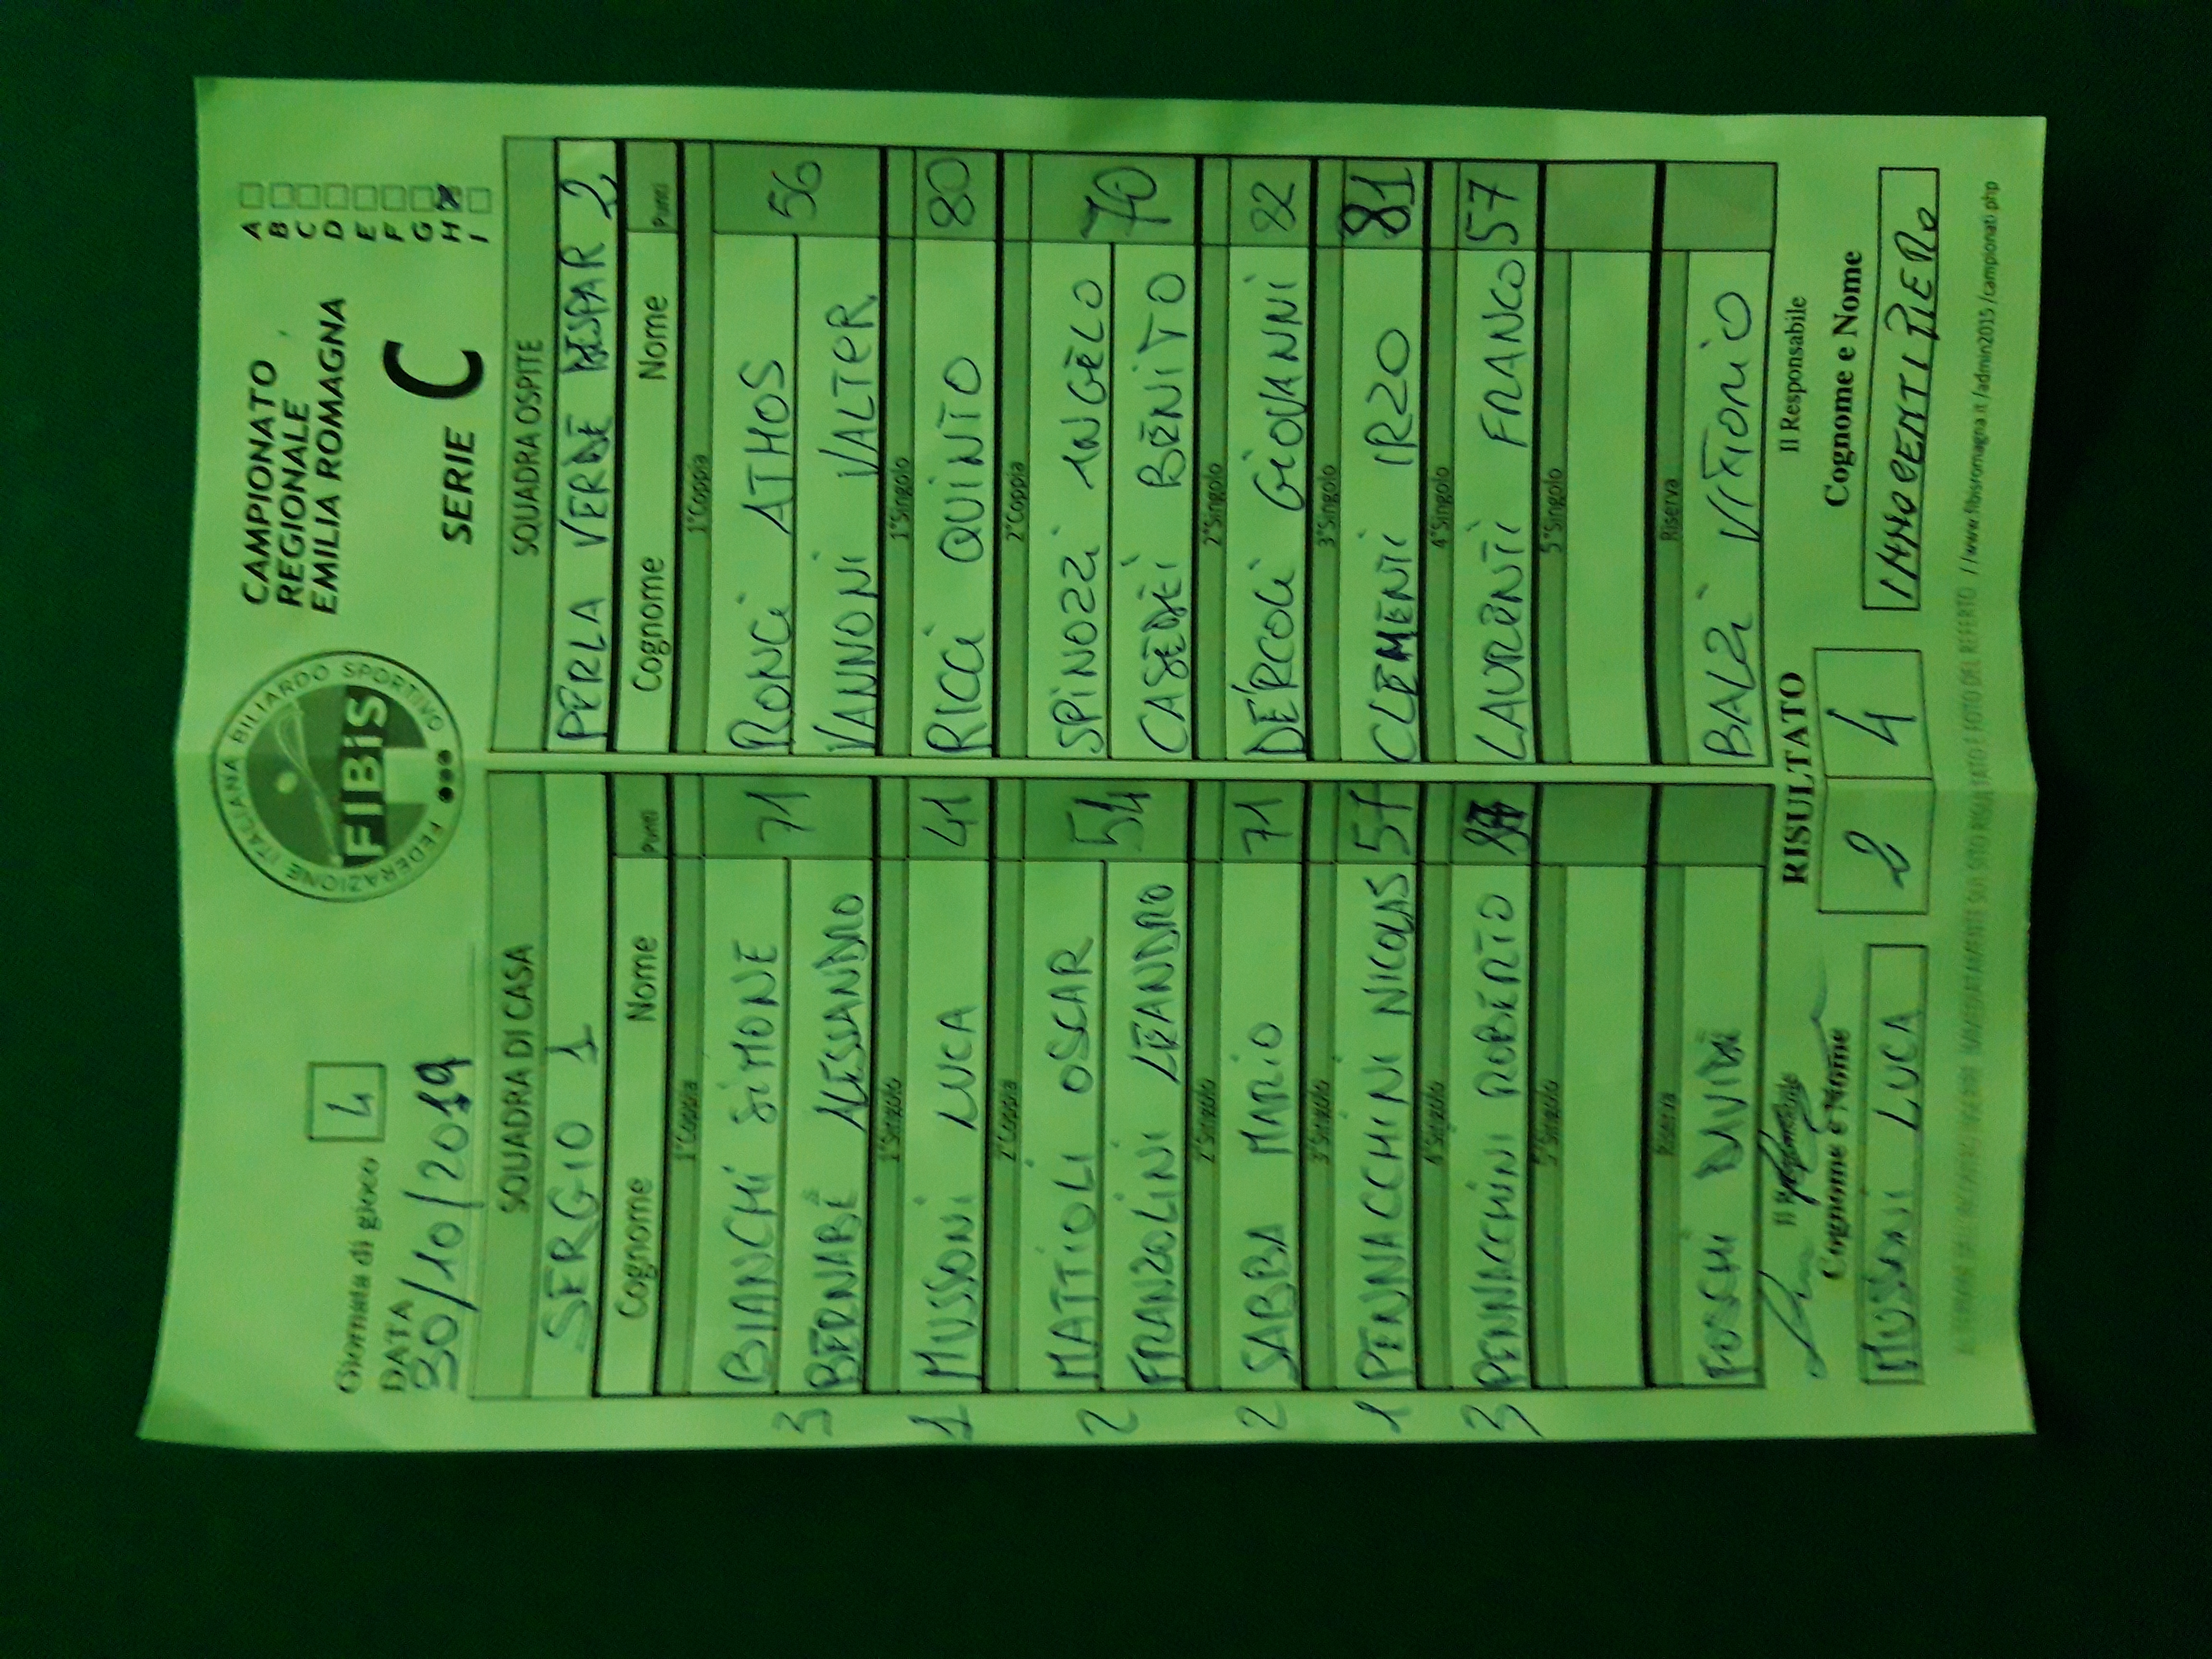 Giornata di gioco 4
DATA
30/10/2019
FEDERAZIONE ITALIANA BILIARDO SPORTIVO
FIBiS
CAMPIONATO
REGIONALE
EMILIA ROMAGNA
SERIE C
A
B
C
D
E
F
G
H X
I
SQUADRA DI CASA SQUADRA OSPITE
SERGIO 1 PERLA VERDE 2
Cognome Nome Punti Cognome Nome Punti
1°Coppia 1°Coppia
3 BIANCHI SIMONE 71 RONCI ATHOS 56
BERNABÈ ALESSANDRO VANNONI VALTER
1°Singolo 1°Singolo
1 MUSSONI LUCA 41 RICCI QUINTO 80
2°Coppia 2°Coppia
2 MATTIOLI OSCAR 54 SPINOZZI ANGELO 70
FRANZOLINI LEANDRO CASEDEI BENITO
2°Singolo 2°Singolo
2 SABBA MARIO 71 DÉRCOLI GIOVANNI 82
3°Singolo 3°Singolo
1 PENNACCHINI NICOLAS 57 CLEMENTI IRZO 81
4°Singolo 4°Singolo
3 PENNACCHINI ROBERTO LAURENTI FRANCO 57
5°Singolo 5°Singolo
Riserva Riserva
FOSCHI DAVIDE BALZI VITTORIO
Il Responsabile RISULTATO Il Responsabile
Cognome e Nome 2 4 Cognome e Nome
MUSSONI LUCA INNOCENTI PIERO
AL TERMINE DELL'INCONTRO INSERIRE IMMEDIATAMENTE SUL SITO RISULTATO E FOTO DEL REFERTO //www.fibisromagna.it/admin2015/campionati.php